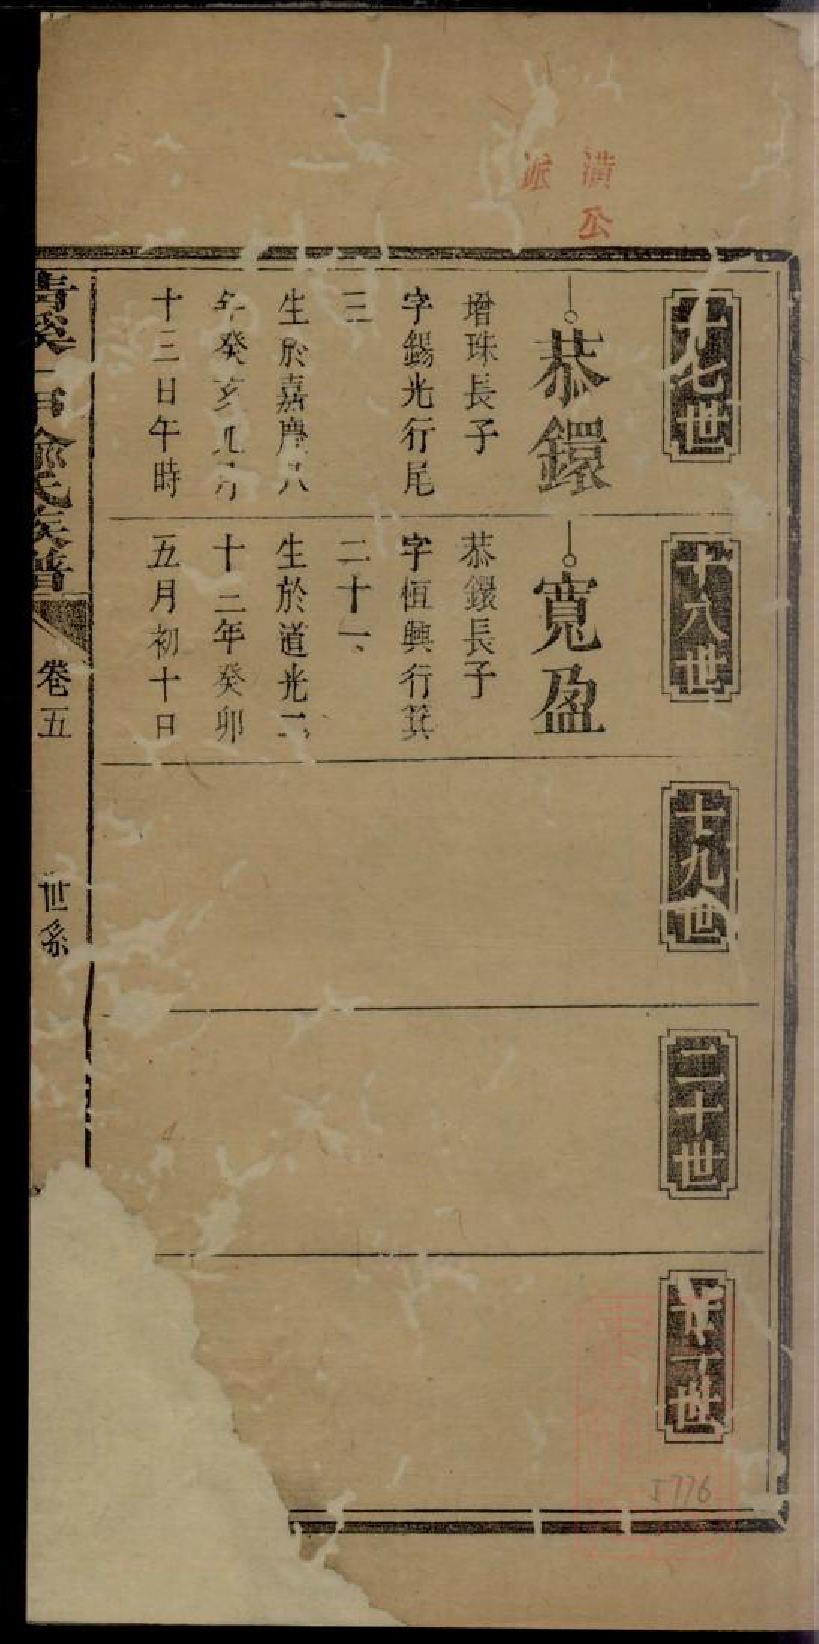 潢公
派
十七世
恭鐶
增珠長子
字錫光行尾
三
生於嘉慶八
年癸亥九月
十三日午時
十八世
寬盈
恭鐶長子
字恒興行箕
二十一
生於道光二
十二年癸卯
五月初十日
十九世
二十世
廿一世
J776
氏族譜
卷五
世系